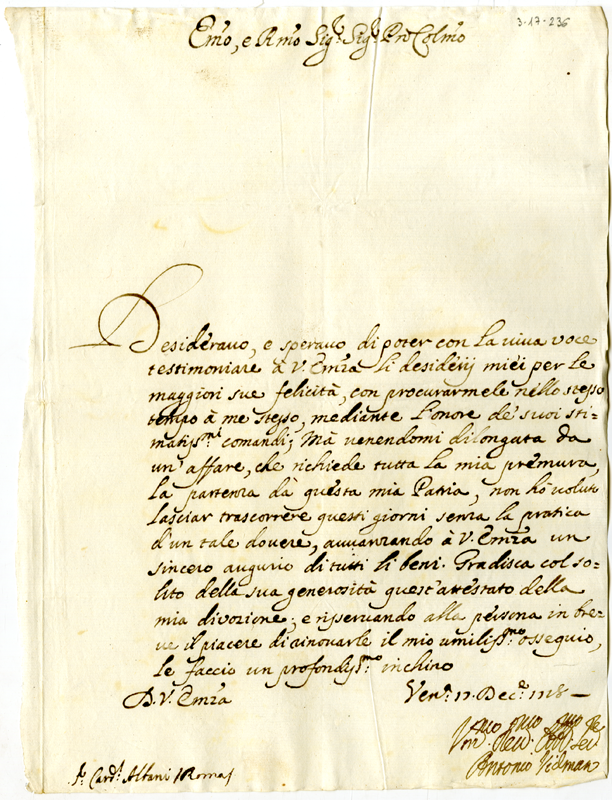 3-17-236
Emo, e Rmo Sigr. Sigr. Pron Colmo
Desideravo, e speravo di poter con la viva voce
testimoniare à V. Emza li desiderij miei per le
maggiori sue felicità, con procurarmele nello stesso
tempo à me stesso, mediante l'onore de' suoi sti=
matissmi comandi; Mà venendomi dilongata da
un' affare, che richiede tutta la mia premura,
la partenza dà questa mia Patria, non hò voluto
lasciar trascorrere questi giorni senza la prattica
d'un tale dovere, avvanzando à V. Emza un
sincero augurio di tutti li beni. Gradisca col so=
lito della sua generosità quest'attestato della
mia divozione; e riservando alla persona in bre=
ve il piacere di rinovarle il mio umilissmo ossequio,
le faccio un profondissmo inchino
D. V. Emza Vena. 17. Dece. 1718 -
Vmo Devmo Obmo Sere
Antonio Vidman
Sr. Cardl. Albani / Roma /